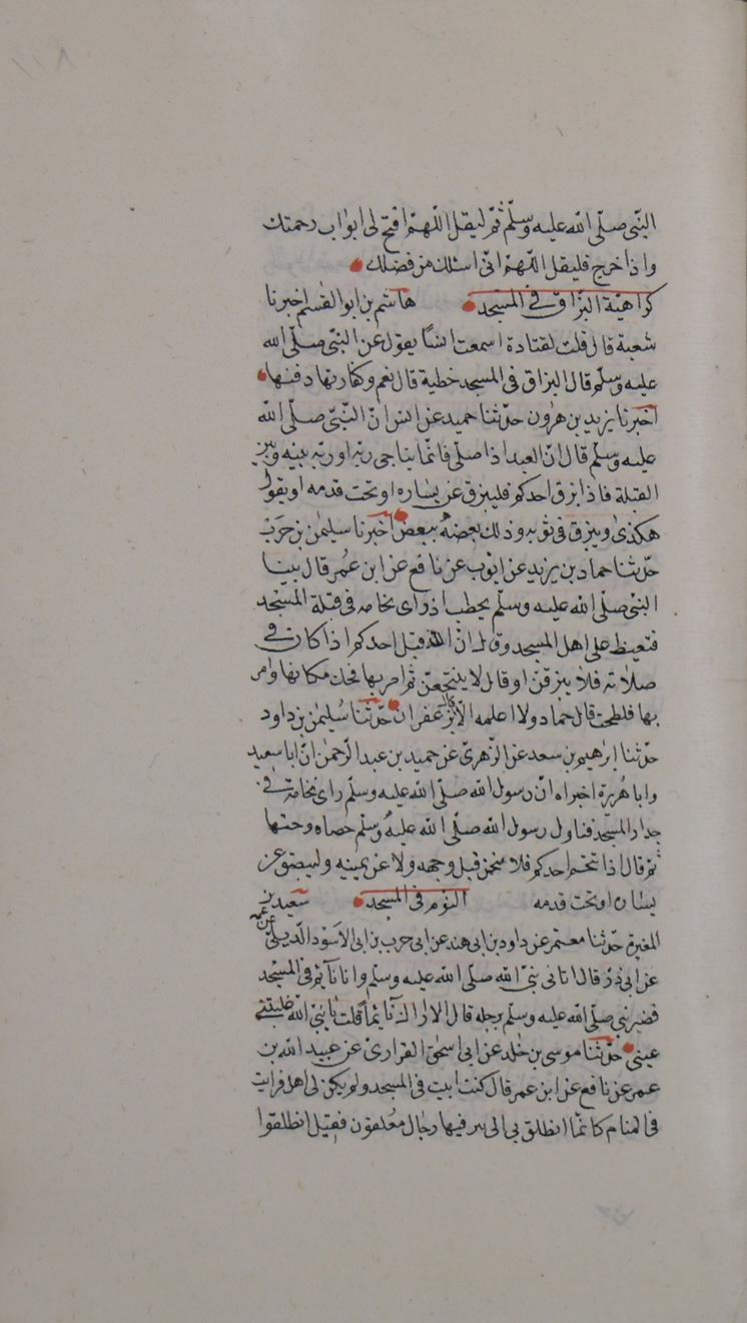 النبى صلى الله عليه وسلم ثم ليقل اللهم افتح لى ابواب رحمتك
واذا خرج فليقل اللهم انى اسئلك من فضلك
كراهية البزاق فى المسجد هاشم بن ابو القسم اخبرنا
شعبة قال قلت لقتادة اسمعت انسًا يقول عن النبى صلى الله
عليه وسلم قال البزاق فى المسجد خطية قال نعم وكفارتها دفنها
اخبرنا يزيد بن هرون حدثنا حميد عن انس ان النبى صلى الله
عليه وسلم قال ان العبد اذا صلى فانما يناجى ربه او ربه بينه وبين
القبلة فاذا بزق احدكم فليبزق عن يساره او تحت قدمه او يقول
هكذى ويبزق فى ثوبه وذلك بعضه ببعض اخبرنا سليمن بن حرب
حدثنا حماد بن يزيد عن ايوب عن نافع عن ابن عمر قال بينا
النبى صلى الله عليه وسلم يخطب اذ راى نخامه فى قبلة المسجد
فتغيظ على اهل المسجد وقال ان الله قبل احدكم اذا كان فى
صلاته فلا يبزقن او قال لا يتنخعن ثم امر بها فحك مكانها وامر
بها فلطخت قال حماد ولا اعلمه الا قال بزعفران حدثنا سليمن بن داود
حدثنا ابرهيم بن سعد عن الزهرى عن حميد بن عبد الرحمن ان ابا سعيد
وابا هريرة اخبراه ان رسول الله صلى الله عليه وسلم راى نخامة فى
جدار المسجد فتناول رسول الله صلى الله عليه وسلم حصاه وحتها
ثم قال اذا تنخم احدكم فلا يتنخمن قبل وجهه ولا عن يمينه وليبصق عن
يساره او تحت قدمه النوم فى المسجد سعيد بن
المغيرة حدثنا معتمر عن داود بن ابى هند عن ابى حرب بن ابى الاسود الديلى عن عمه
عن ابى ذر قال اتانى نبى الله صلى الله عليه وسلم وانا نآئم فى المسجد
فضربنى صلى الله عليه وسلم برجله قال الا اراك نآئمًا قلت يا نبى الله غلبتنى
عينى حدثنا موسى بن خلد عن ابى اسحق الفزارى عن عبيد الله بن
عمر عن نافع عن ابن عمر قال كنت ابيت فى المسجد ولم يكن لى اهل فرايت
فى المنام كانما انطلق بى الى بير فيها رجال معلقون فقيل انطلقوا